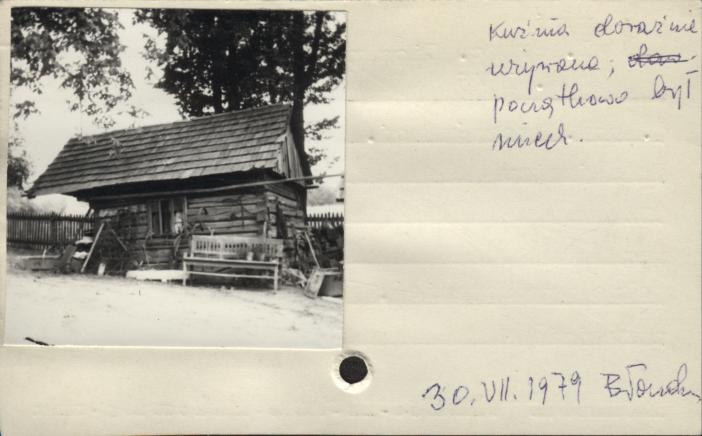 Kuźnia doraźnie
używana;
początkowo był
miech.
30.VII.1979